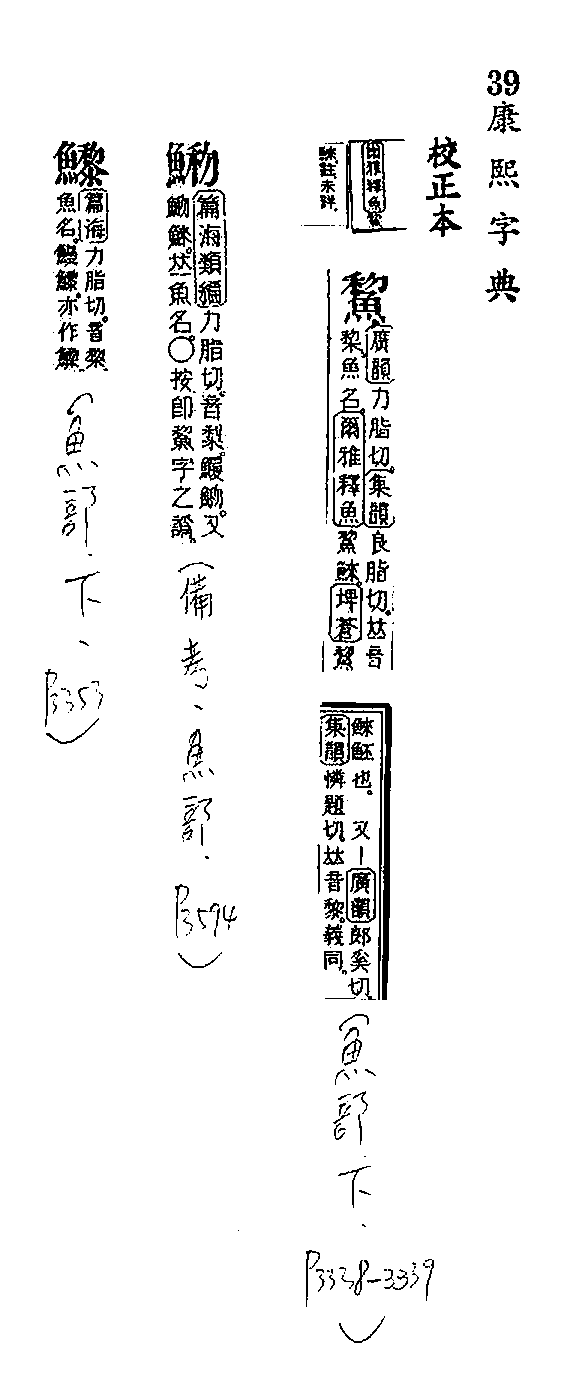 39康熙字典
校正本
爾雅釋魚鯬
鯠註未詳
鯬
廣韻力脂切集韻良脂切𠀤音
犂魚名爾雅釋魚鯬鯠埤蒼鯬
鯠魾也。又丨廣韻郎奚切
集韻憐題切𠀤音黎義同
篇海類編力脂切音犂鰻又
鯠𠀤魚名〇按卽鯬字之譌
(備考、魚部、P3594)
篇海力脂切音黎
魚名鰻鱺亦作
(魚部、下、P3353)
(魚部、下、P3338-3339)